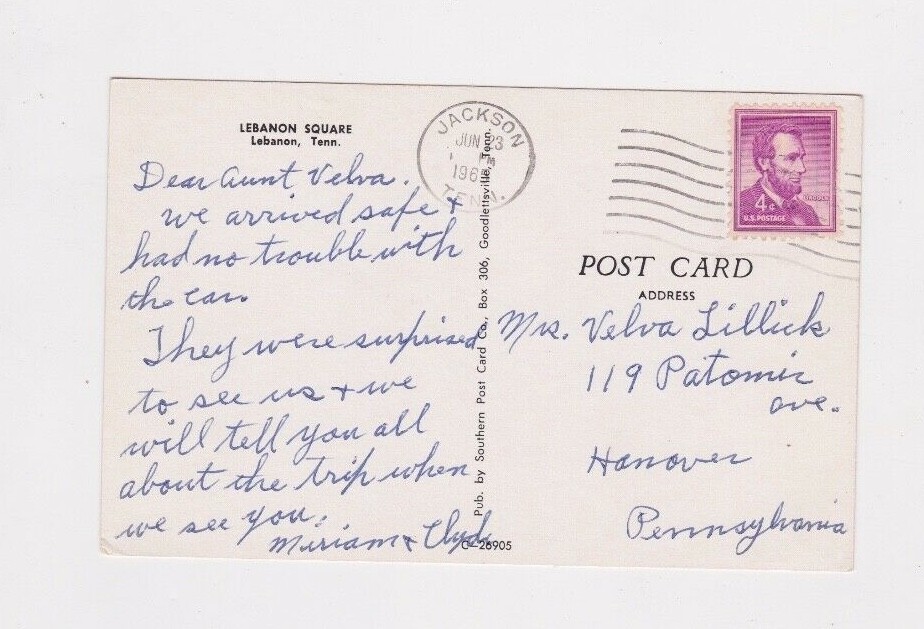 LEBANON SQUARE
Lebanon, Tenn.
Dear Aunt Velva.
we arrived safe +
had no trouble with
the car.
They were surprised
to see us + we
will tell you all
about the trip when
we see you.
Miriam + Clyde
Pub. by Southern Post Card Co., Box 306, Goodlettsville, Tenn.
C-26905
JACKSON
JUN 23
PM
TENN.
LINCOLN
4¢
U.S. POSTAGE
POST CARD
ADDRESS
Mrs. Velva Lillich
119 Patomic
ave.
Hanover
Pennsylvania